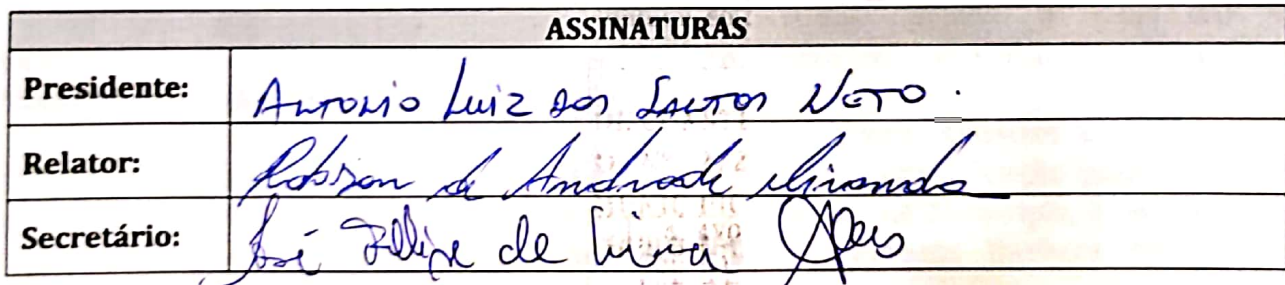 ASSINATURAS
Presidente: Antonio Luiz dos Santos Neto.
Relator: Robson de Andrade Miranda
Secretário: José Fellipe de Lima Alves